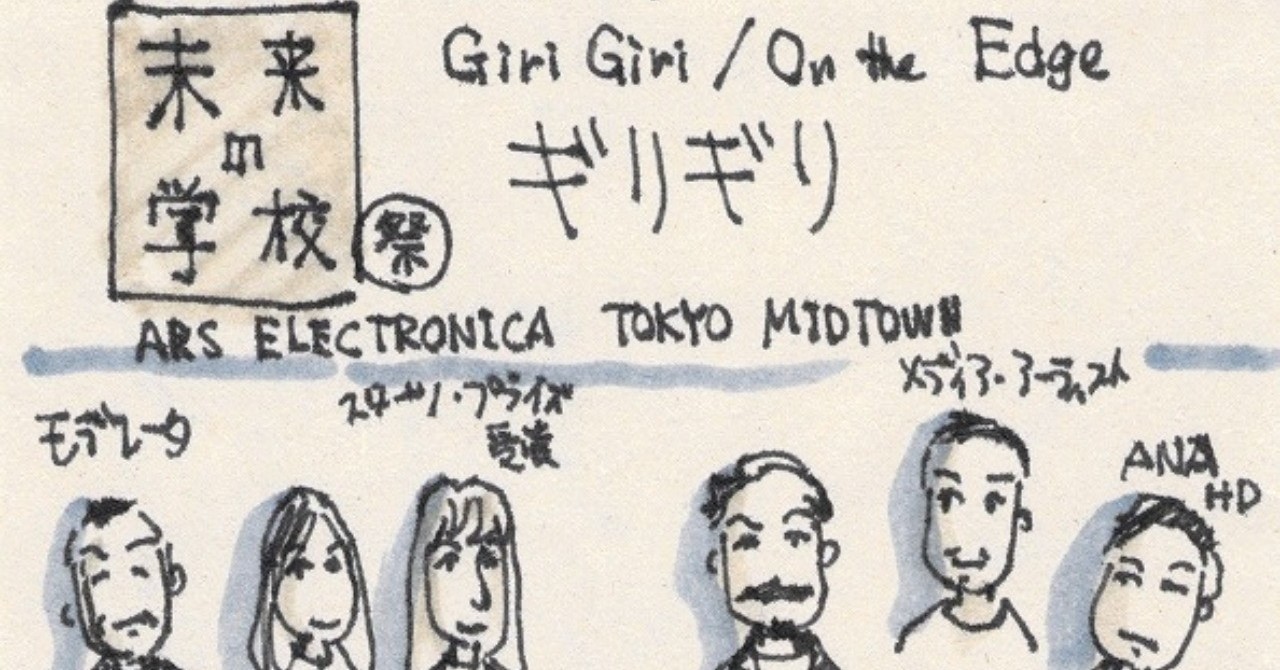 未来
の
学校
祭
Giri Giri / On the Edge
ギリギリ
ARS ELECTRONICA TOKYO MIDTOWN
モデレータ
スターツ・プライズ
受賞
メディア・アーティスト
ANA
HD